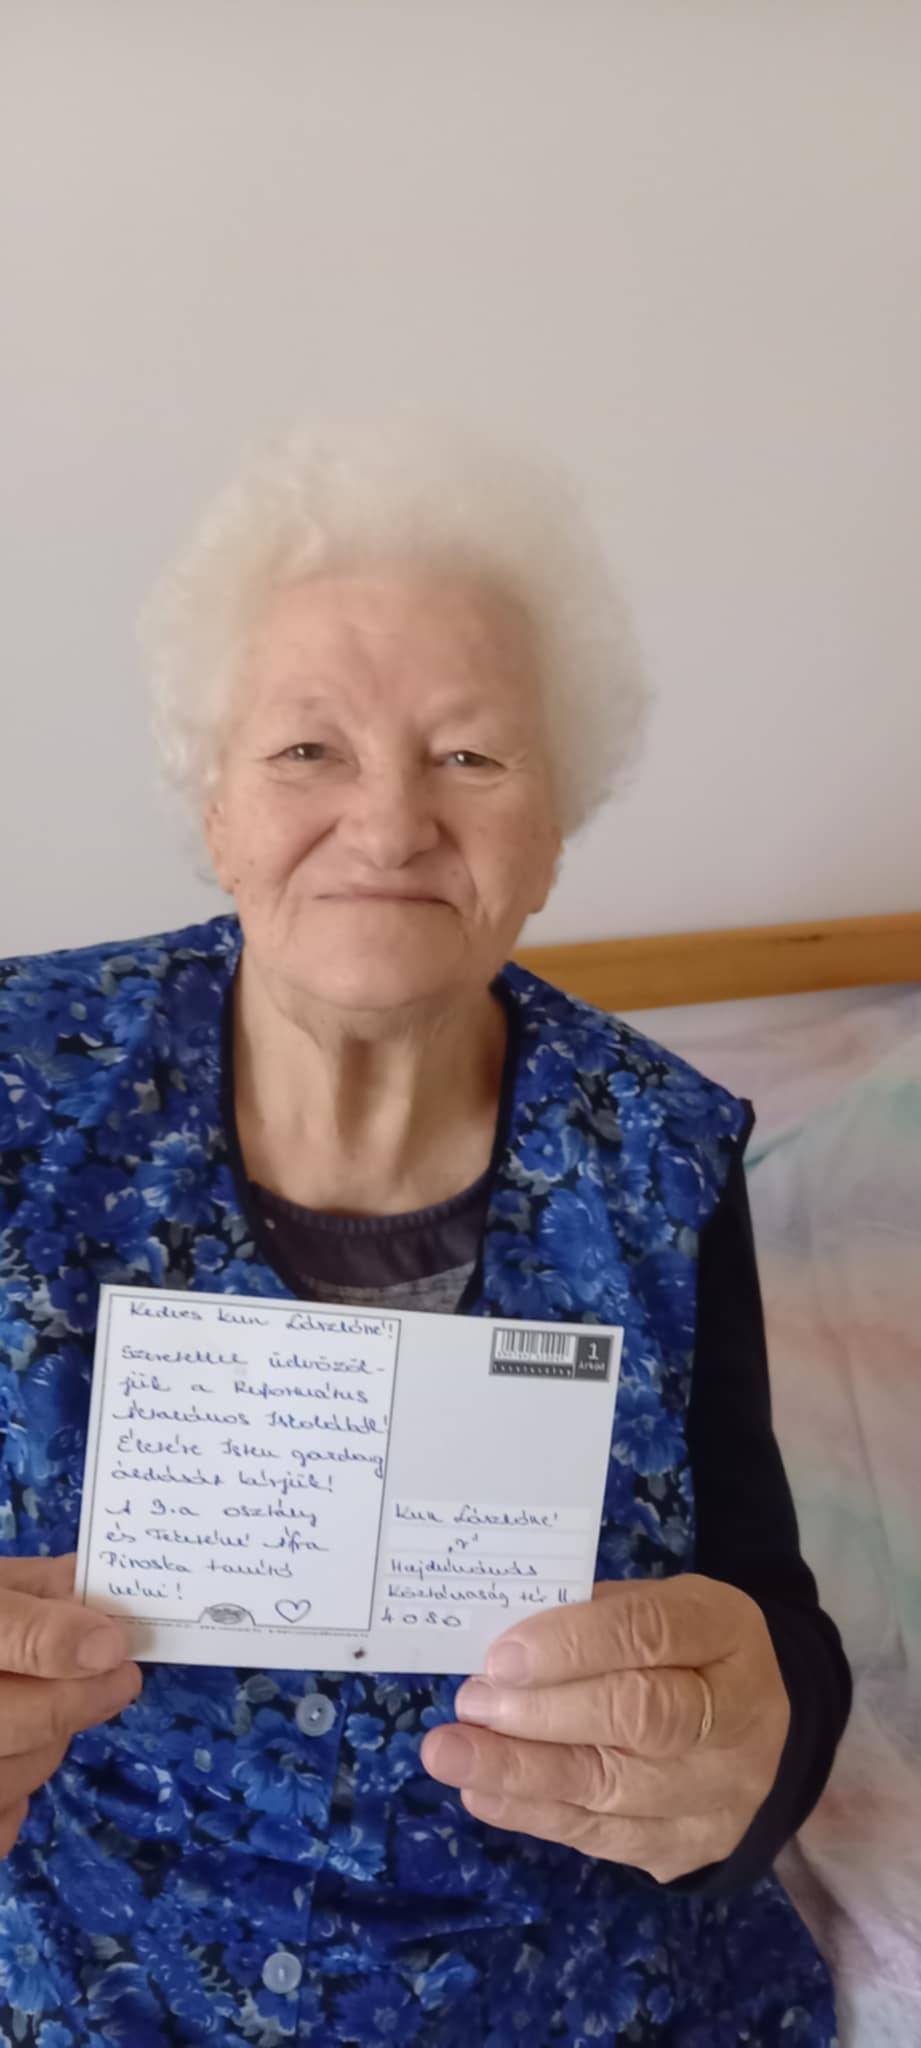 Kedves Kun Lászlóné!
Szeretettel üdvözöl-
jük a Református
Általános Iskolából!
Életére Isten gazdag
áldását kérjük!
A 3.a osztály
és Afra
Piroska tanító
néni!
1
Kun Lászlóné
Hajdúnánás
Köztársaság tér 11.
4080